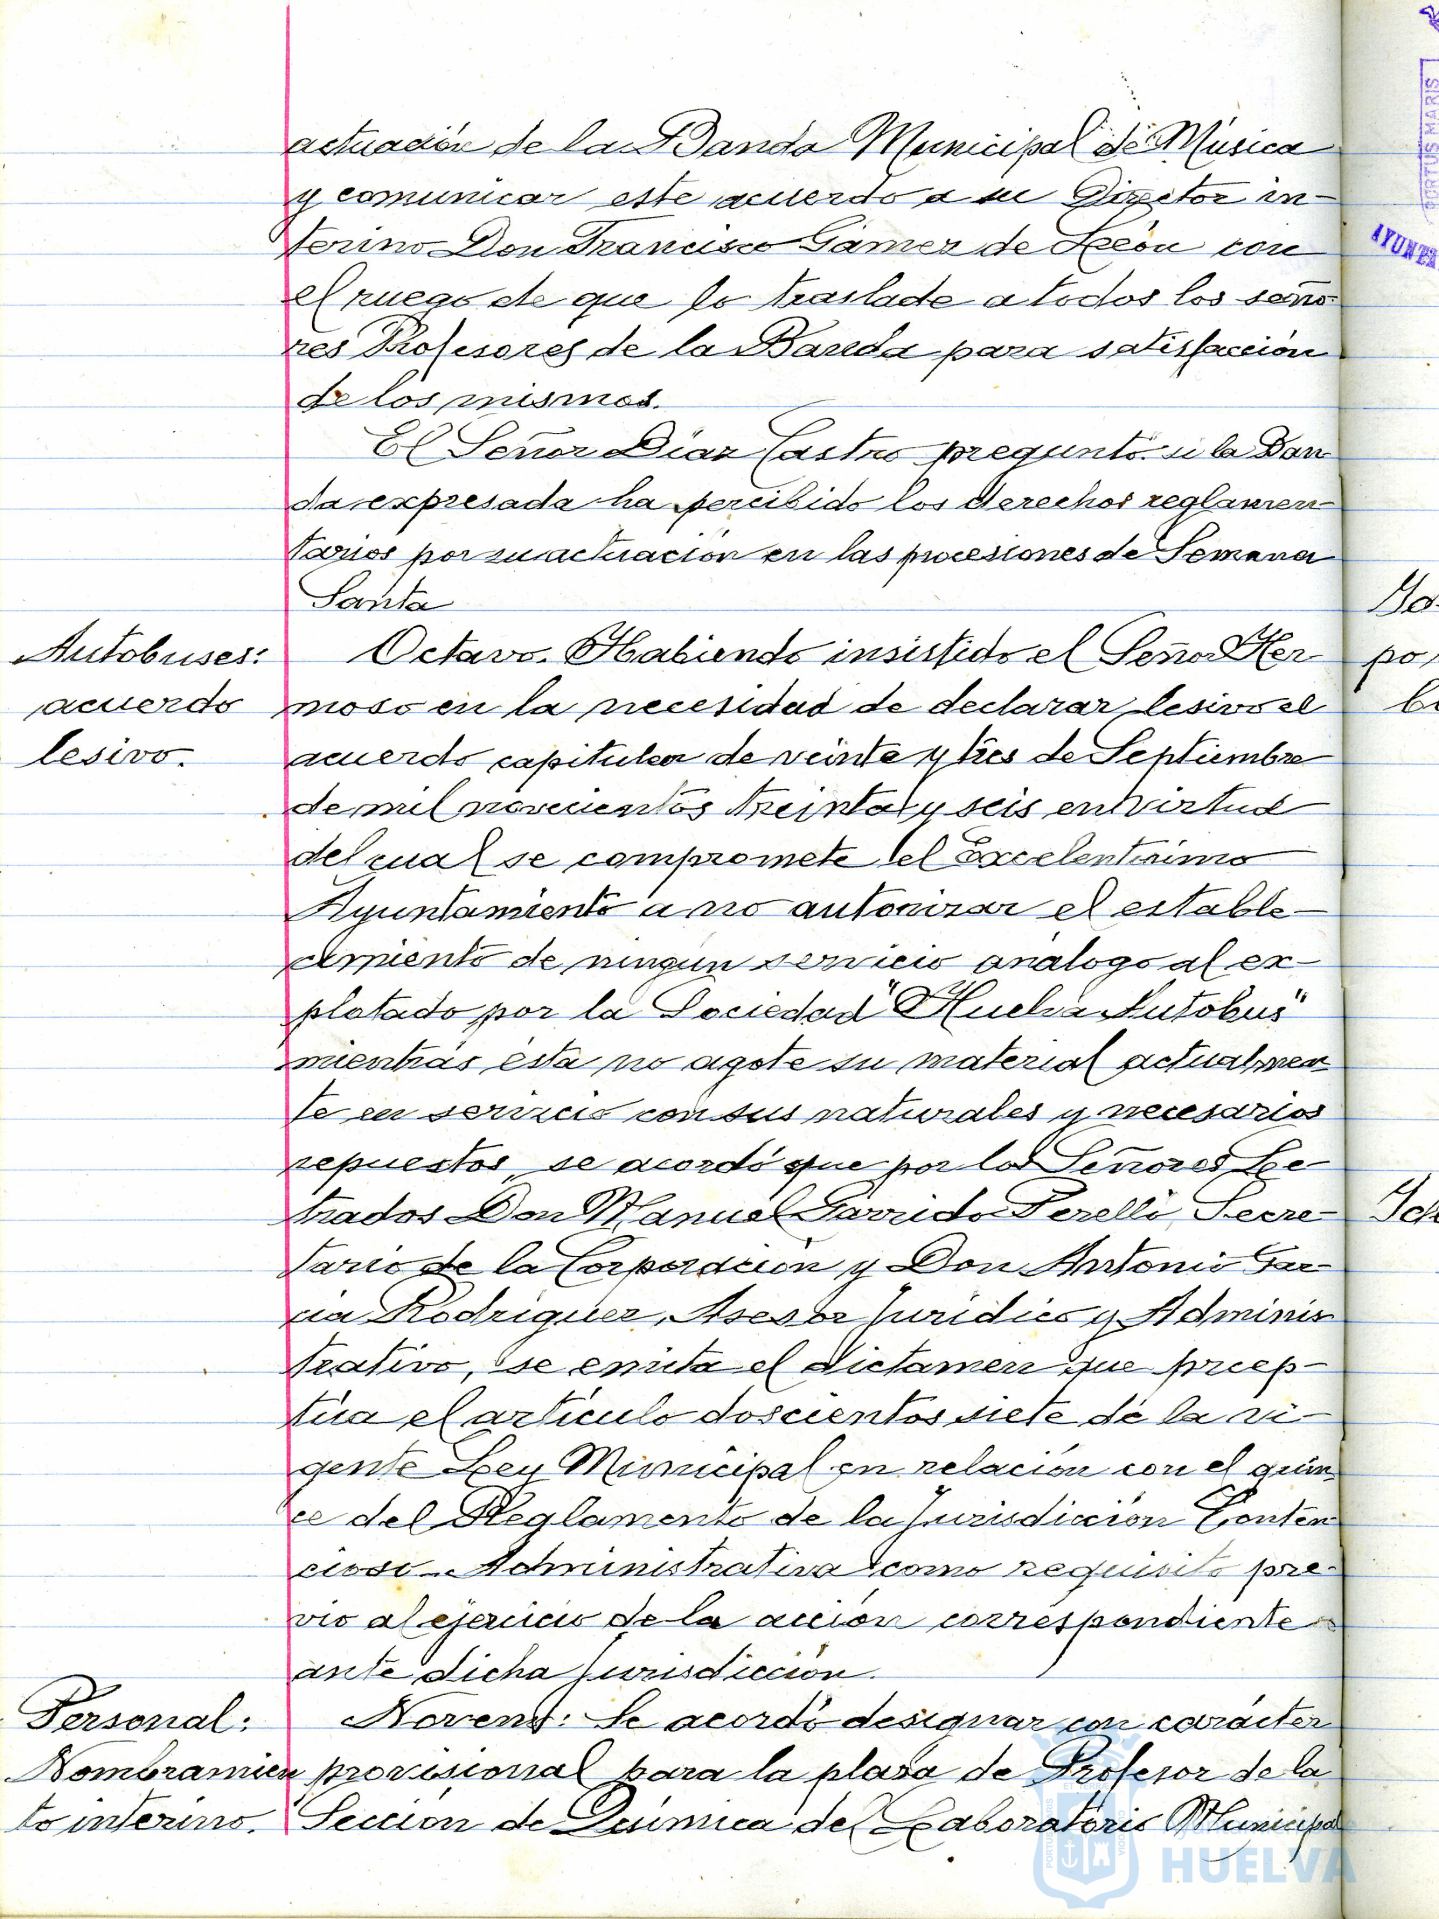 actuación de la Banda Municipal de Música
y comunicar este acuerdo a su Director in-
terino Don Francisco Gámez de León con
el ruego de que lo traslade a todos los seño
res Profesores de la Banda para satisfacción
de los mismos.
El Señor Díaz Castro preguntó si la Ban
da expresada ha percibido los derechos reglamen-
tarios por su actuación en las procesiones de Semana
Santa
Autobuses:
acuerdo
lesivo.
Octavo. Habiendo insistido el Señor Her
moso en la necesidad de declarar lesivo el
acuerdo capitular de veinte y tres de Septiembre
de mil novecientos treinta y seis en virtud
del cual se compromete el Excelentísimo
Ayuntamiento a no autorizar el estable-
cimiento de ningún servicio análogo al ex-
plotado por la Sociedad "Huelva Autobus"
mientras ésta no agote su material actualmen
te en servicio con sus naturales y necesarios
repuestos, se acordó que por los Señores Le-
trados Don Manuel Garrido Perelló, Secre-
tario de la Corporación y Don Antonio Gar-
cía Rodríguez, Asesor Jurídico y Adminis
trativo, se emita el dictamen que precep-
túa el artículo doscientos siete de la vi-
gente Ley Municipal en relación con el quin
ce del Reglamento de la Jurisdicción Conten
cioso-Administrativa como requisito pre-
vio al ejercicio de la acción correspondiente
ante dicha Jurisdicción.
Personal:
Nombramien
to interino.
Noveno: Se acordó designar con carácter
provisional para la plaza de Profesor de la
Sección de Química del Laboratorio Municipal
PORTUS MARIS
AYUNTA
po
HUELVA